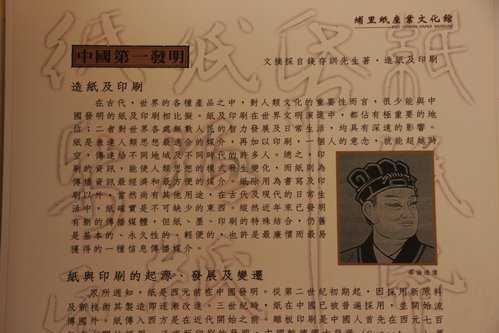 埔里紙產業文化館
PULI TAIWAN PAPER MUSEUM
中國第一發明
文摘採自錢存訓先生著・造紙及印刷
造紙及印刷
在古代，世界的各種產品之中，對人類文化的重要性而言，很少能與中
國發明的紙及印刷相比擬。紙及印刷在世界文明演進中，都佔有極重要的地
位；二者對世界各處無數人民的智力發展及日常生活，均具有深遠的影響。
紙是表達人類思想最適合的媒介，再加以印刷，一個人的意念，就能超越時
空，傳達給不同地域及不同時代的許多人。總之，印
刷的資訊，能使人類思想的模式發生變化，而紙則為
傳播資訊最經濟和最方便的媒介。紙除用為書寫及印
刷以外，當然尚有其他用途，在古代及現代的日常生
活中，紙確實是不可缺少的東西。縱然近年來已發明
有新的傳播媒體，但紙、墨、印刷的特殊結合，仍舊
是基本的、永久性的、輕便的，也許是最廉價而最易
獲得的一種信息傳播媒介。
蔡倫造像
紙與印刷的起源、發展及變遷
眾所週知，紙是西元前在中國發明。從第二世紀初期起，因採用新原料
及新技術其製造即逐漸改進。三世紀時，紙在中國已被普遍採用，並開始流
傳國外。紙傳入西方是在近代開始之前。雕版印刷是中國人首先在西元七百